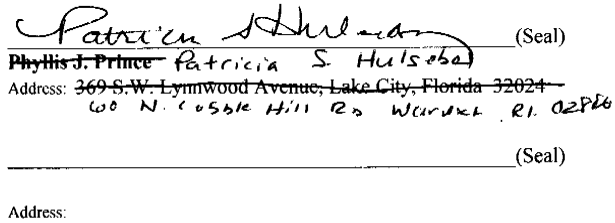 Patricia S Hulsebo (Seal)
Phyllis J. Prince Patricia S. Hulsebo
Address: 369 S.W. Lynnwood Avenue, Lake City, Florida 32024
60 N. Cobble Hill Rd Warwick RI. 02886
(Seal)
Address: